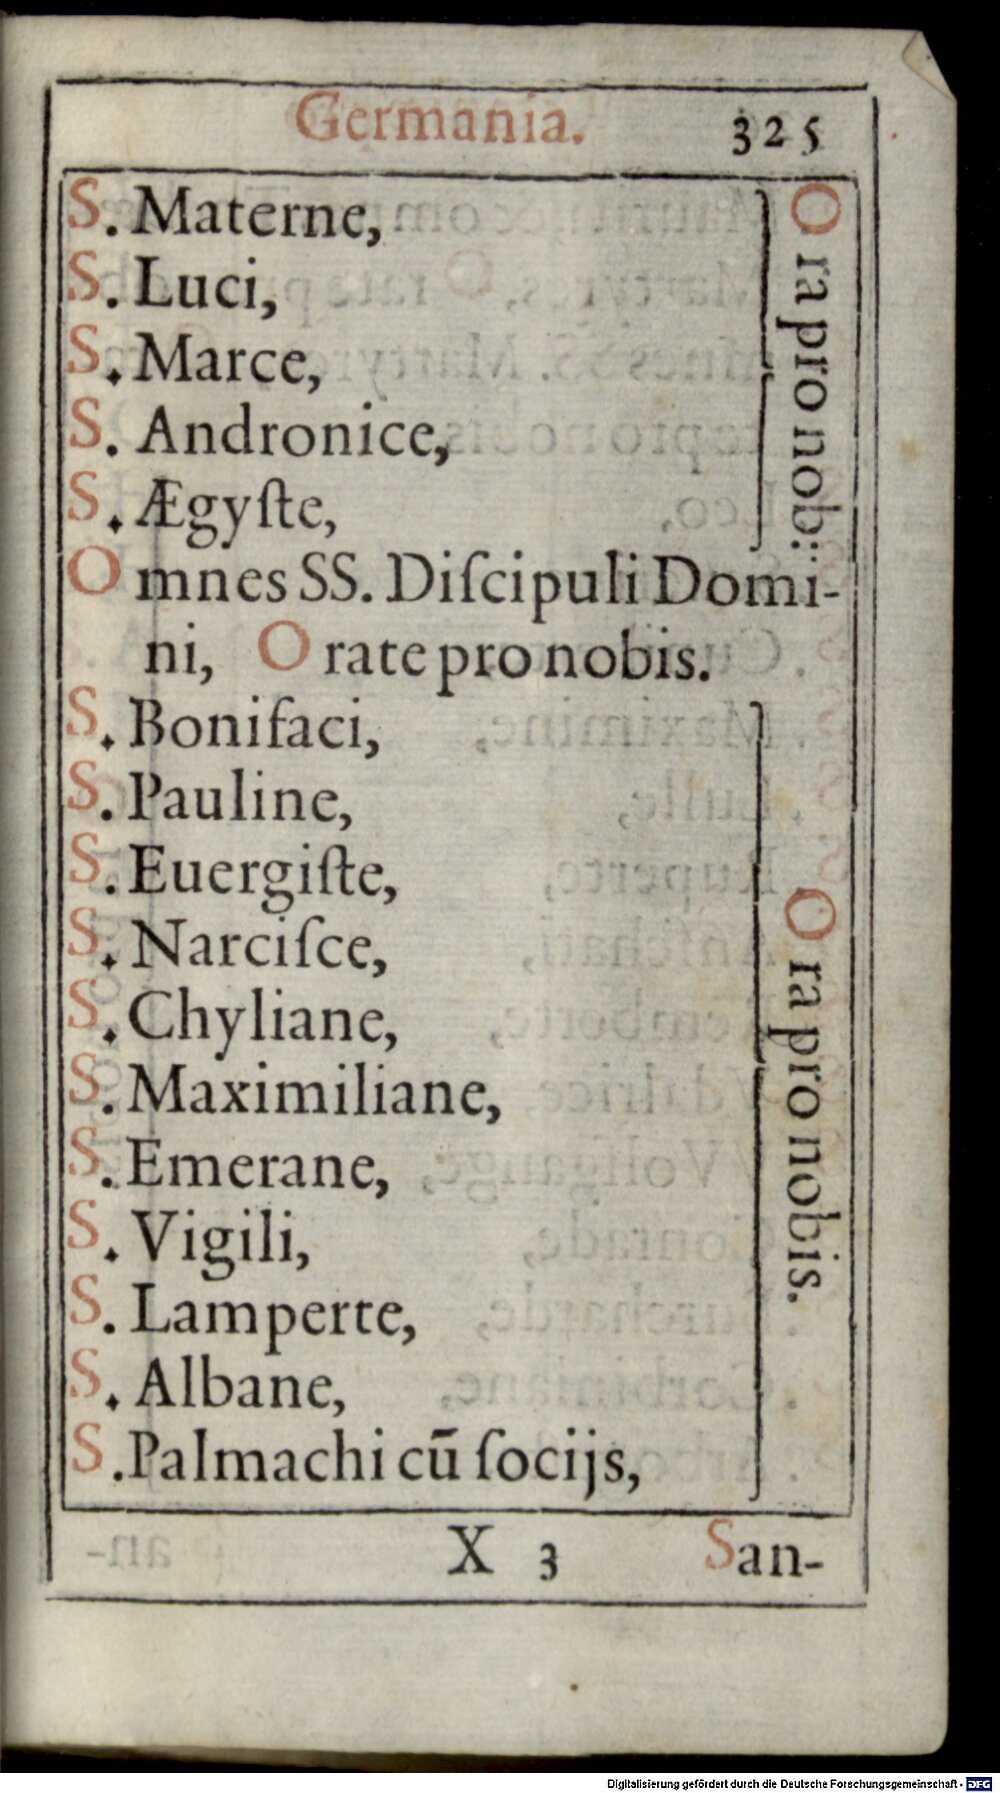 Germania. 325
S. Materne,
S. Luci,
S. Marce,
S. Andronice,
S. Ægyſte,
Ora pro nob:
Omnes SS. Diſcipuli Domi-
ni, Orate pro nobis.
S. Bonifaci,
S. Pauline,
S. Euergiſte,
S. Narciſce,
S. Chyliane,
S. Maximiliane,
S. Emerane,
S. Vigili,
S. Lamperte,
S. Albane,
S. Palmachi cū ſocijs,
Ora pro nobis.
X 3 San-
Digitalisierung gefördert durch die Deutsche Forschungsgemeinschaft - DFG